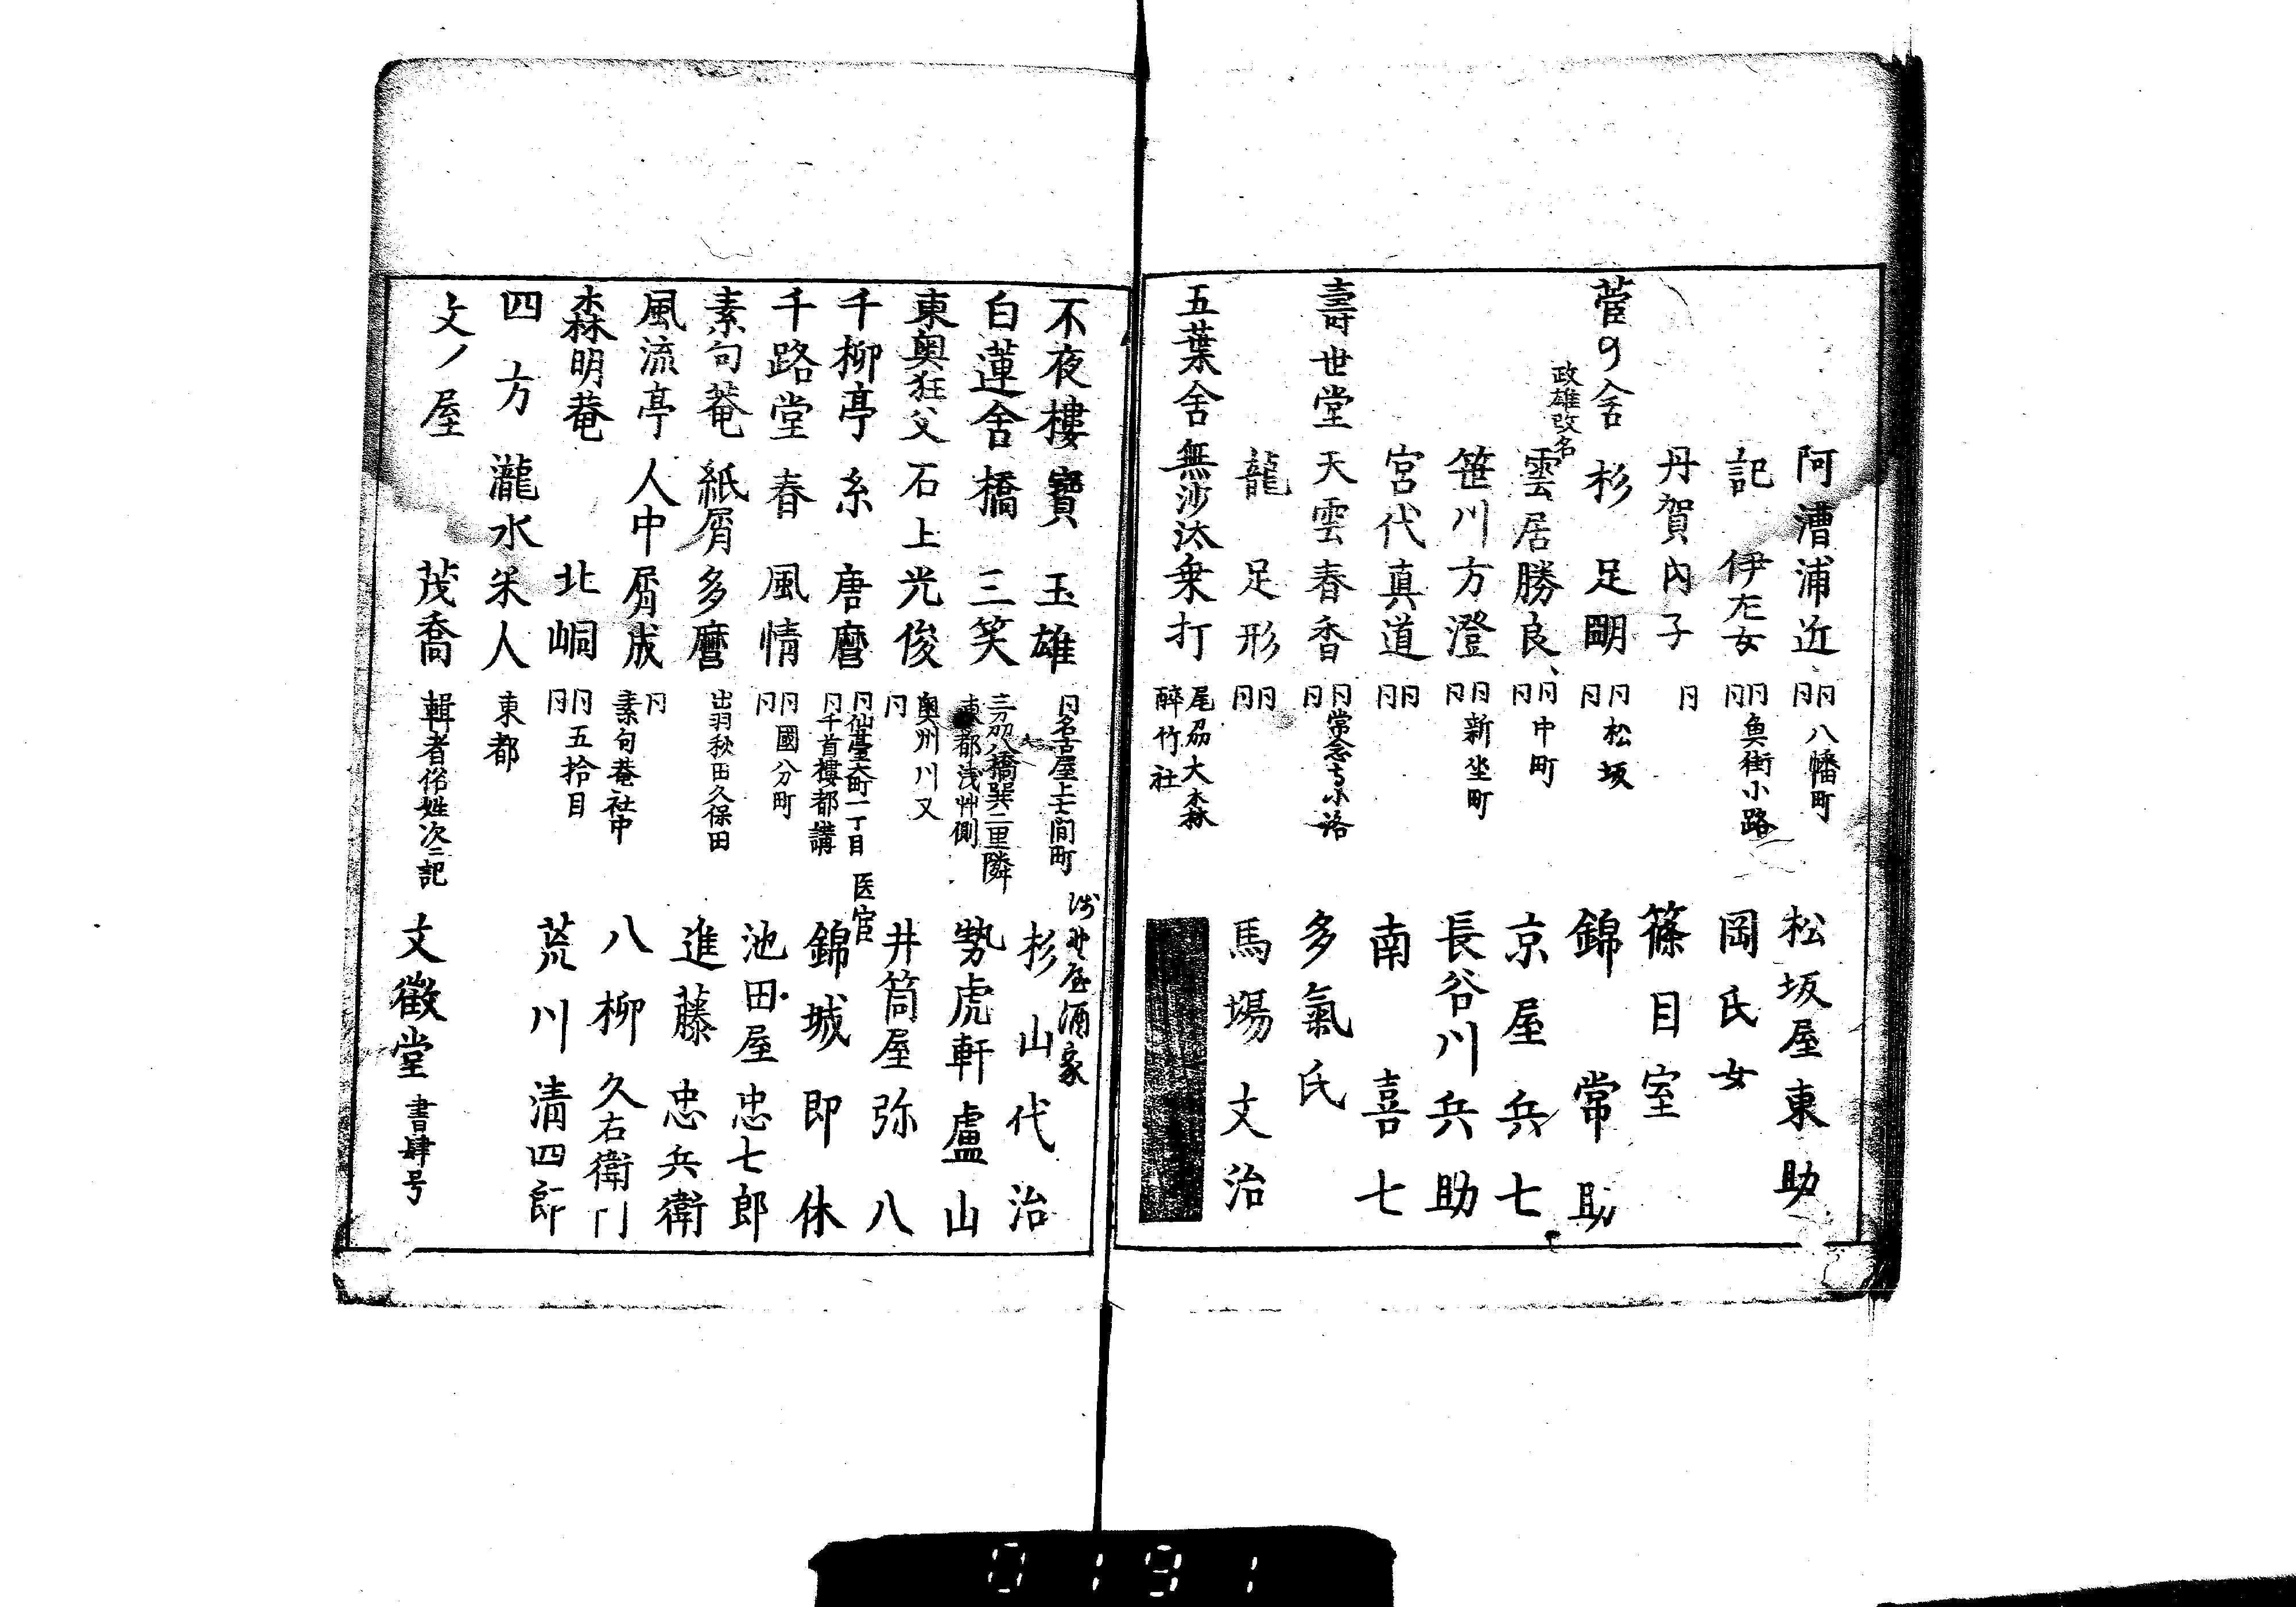 阿漕浦近 同同八幡町 松坂屋東助
記 伊左女 同同魚街小路 岡氏女
丹賀内子 同 篠目室
菅の舎 杉足明 同同松坂 錦常助
政雄改名
雲居勝良 同同中町 京屋兵七
笹川方澄 同同新坐町 長谷川兵助
宮代真道 同同 南喜七
壽世堂 天雲春香 同同常念寺小路 多氣氏
龍足形 同同 馬場文治
五葉舎 無沙汰乗打 尾州大森 醉竹社
不夜樓 寶玉雄 同名古屋上士間町 酒家 杉山代治
白蓮舎 橋三笑 三州八橋巽二里隣 東都浅艸側 勢虎軒盧山
東奥狂父 石上光俊 奥州川又 同 井筒屋弥八
千柳亭 糸唐麿 同仙臺大町一丁目 同千首樓都講 医官 錦城即休
千路堂 春風情 同同國分町 池田屋忠七郎
素句菴 紙屑多麿 出羽秋田久保田 進藤忠兵衛
風流亭 人中屑成 同素句菴社中 八柳久右衛門
森明菴 北峒 同同五拾目 荒川清四郎
四方瀧水米人 東都
文ノ屋 茂喬 輯者俗姓次ニ記 文徴堂 書肆号
0191